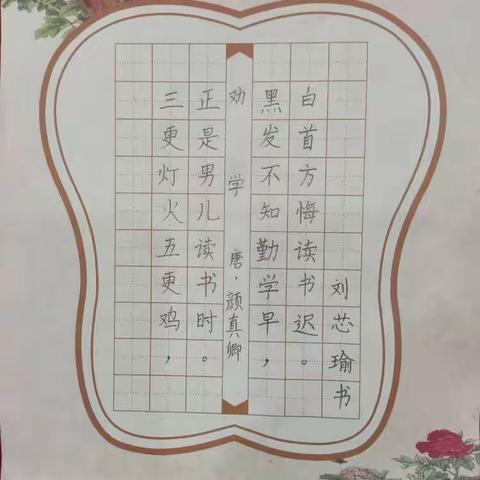 劝学 唐·颜真卿
三更灯火五更鸡，
正是男儿读书时。
黑发不知勤学早，
白首方悔读书迟。
刘芯瑜书